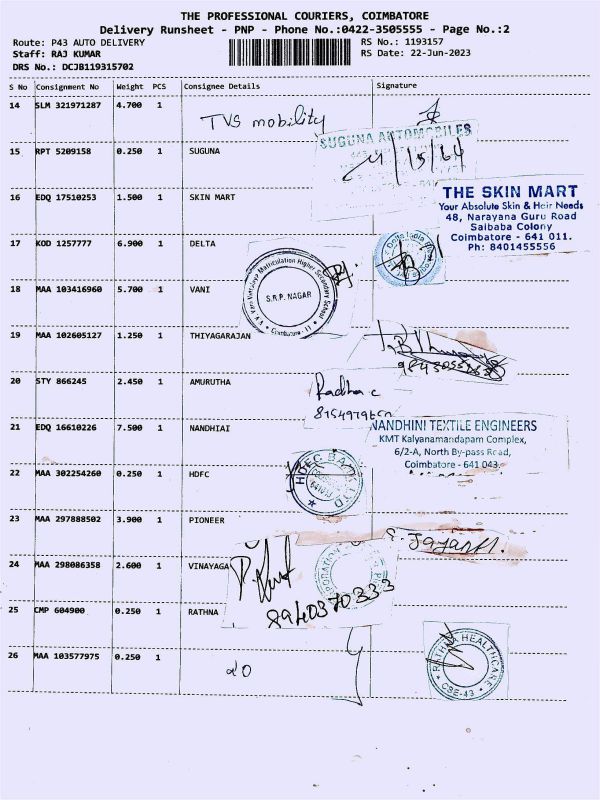 THE PROFESSIONAL COURIERS, COIMBATORE
Delivery Runsheet - PNP - Phone No.:0422-3505555 - Page No.:2
Route: P43 AUTO DELIVERY RS No.: 1193157
Staff: RAJ KUMAR RS Date: 22-Jun-2023
DRS No.: DCJB119315702
S No Consignment No Weight PCS Consignee Details Signature
14 SLM 321971287 4.700 1 TVS mobility
SUGUNA AUTOMOBILES
15 RPT 5209158 0.250 1 SUGUNA
16 EDQ 17510253 1.500 1 SKIN MART
THE SKIN MART
Your Absolute Skin & Heir Needs
48, Narayana Guru Road
Saibaba Colony
Coimbatore - 641 011.
Ph: 8401455556
17 KOD 1257777 6.900 1 DELTA
Matriculation Higher Secondary School
S.R.P. NAGAR
Coimbatore - 11
18 MAA 103416960 5.700 1 VANI
19 MAA 102605127 1.250 1 THIYAGARAJAN
20 STY 866245 2.450 1 AMURUTHA
Radha c
21 EDQ 16610226 7.500 1 NANDHIAI
NANDHINI TEXTILE ENGINEERS
KMT Kalyanamandapam Complex,
6/2-A, North By-pass Road,
Coimbatore - 641 043.
22 MAA 302254260 0.250 1 HDFC
HDFC BANK LTD
23 MAA 297888502 3.900 1 PIONEER
24 MAA 298086358 2.600 1 VINAYAGA
8940370333
25 CMP 604900 0.250 1 RATHNA
26 MAA 103577975 0.250 1
RATHNA HEALTHCARE
CBE-43